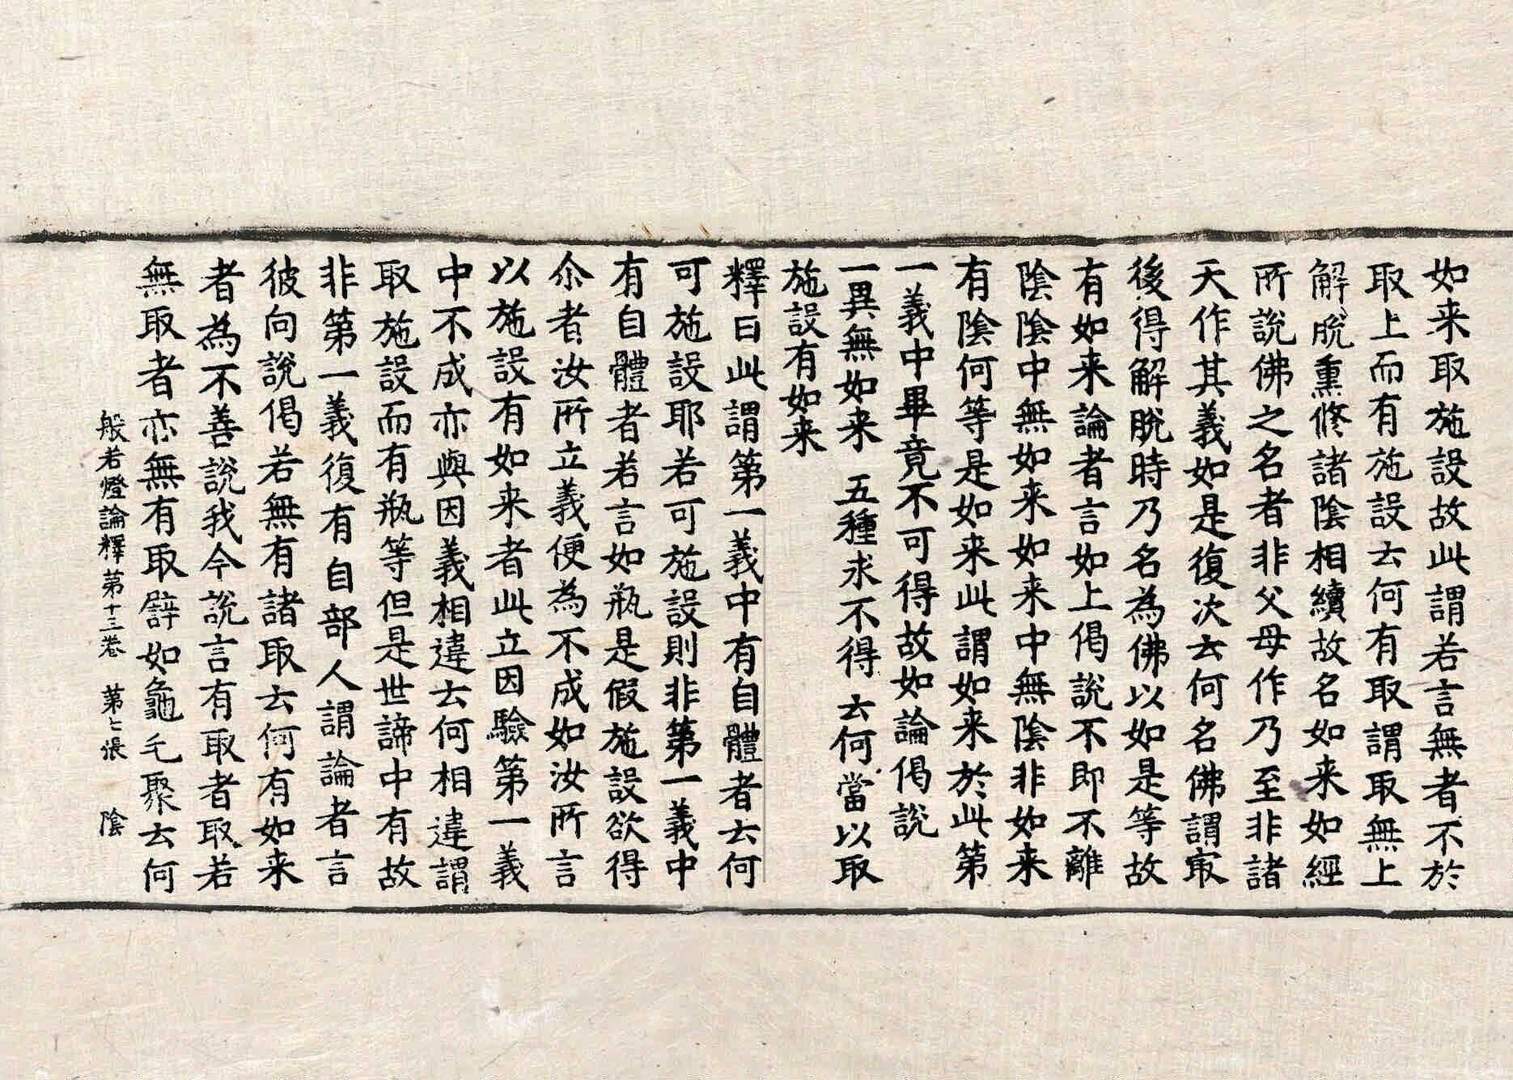 如来取施設故此謂若言無者不於
取上而有施設云何有取謂取無上
解脱熏修諸陰相續故名如来如經
所說佛之名者非父母作乃至非諸
天作其義如是復次云何名佛謂㝡
後得解脱時乃名為佛以如是等故
有如来論者言如上偈說不即不離
陰陰中無如来如来中無陰非如来
有陰何等是如来此謂如来於此第
一義中畢竟不可得故如論偈說
一異無如来 五種求不得 云何當以取
施設有如来
釋曰此謂第一義中有自體者云何
可施設耶若可施設則非第一義中
有自體者若言如瓶是假施設欲得
尒者汝所立義便為不成如汝所言
以施設有如来者此立因驗第一義
中不成亦與因義相違云何相違謂
取施設而有瓶等但是世諦中有故
非第一義復有自部人謂論者言
彼向說偈若無有諸取云何有如来
者為不善說我今說言有取者取若
無取者亦無有取譬如龜毛聚云何
般若燈論釋第十三卷 第七張 陰